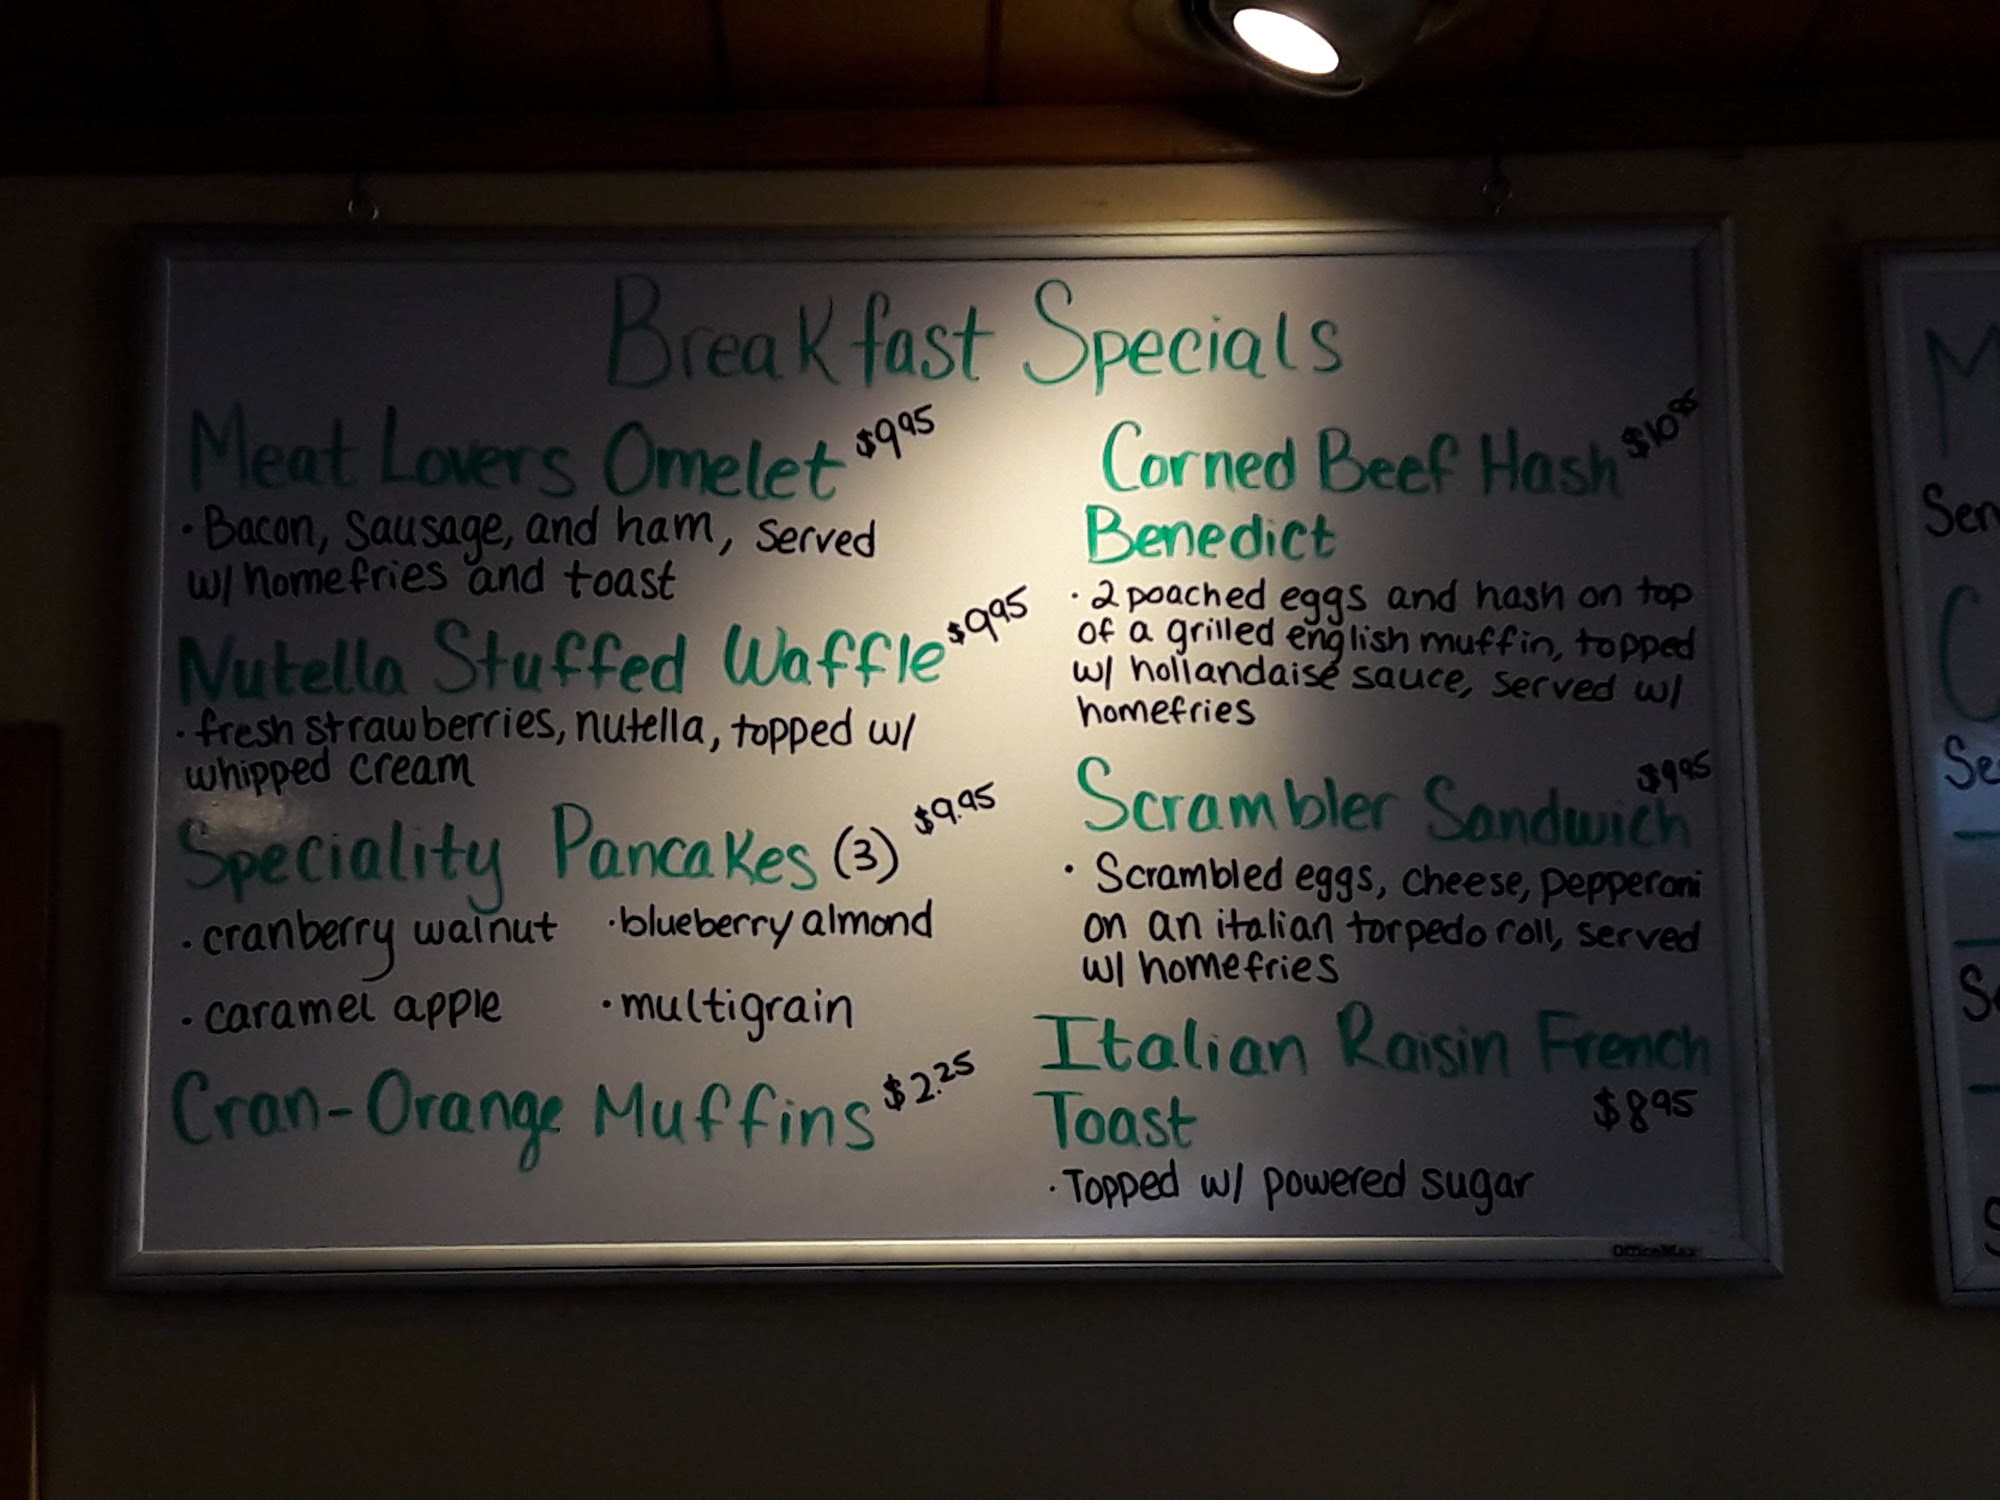 Breakfast Specials
Meat Lovers Omelet $9.95
· Bacon, sausage, and ham, served
w/ homefries and toast
Nutella Stuffed Waffle $9.95
· fresh strawberries, nutella, topped w/
whipped cream
Speciality Pancakes (3) $9.95
· cranberry walnut · blueberry almond
· caramel apple · multigrain
Cran-Orange Muffins $2.25
Corned Beef Hash $10.95
Benedict
· 2 poached eggs and hash on top
of a grilled english muffin, topped
w/ hollandaise sauce, served w/
homefries
$9.95
Scrambler Sandwich
· Scrambled eggs, cheese, pepperoni
on an italian torpedo roll, served
w/ homefries
Italian Raisin French
Toast $8.95
· Topped w/ powered sugar
OfficeMax
M
Sen
C
Se
S